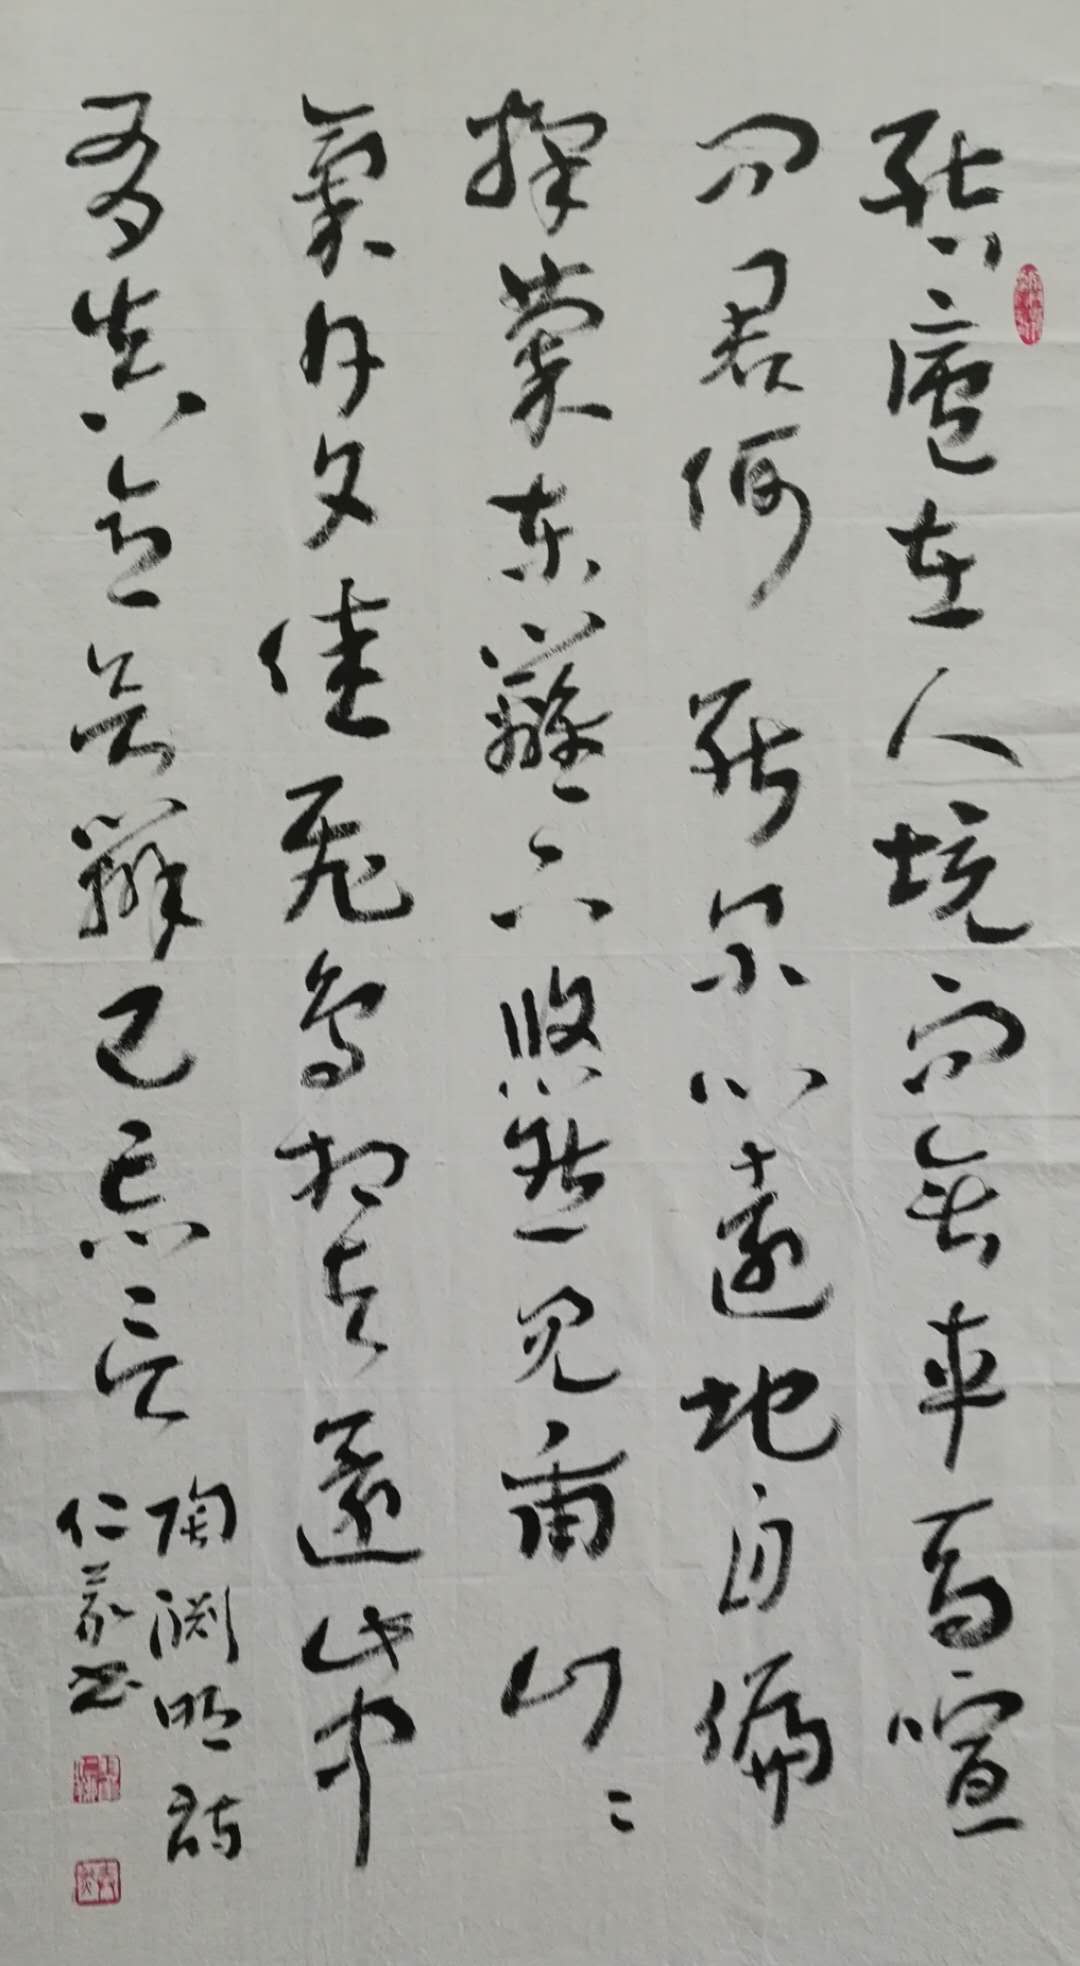 結廬在人境而無車馬喧
問君何能爾心遠地自偏
採菊東籬下悠然見南山〻
氣日夕佳飛鳥相與還此中
有真意欲辨已忘言
陶淵明詩
仁義书